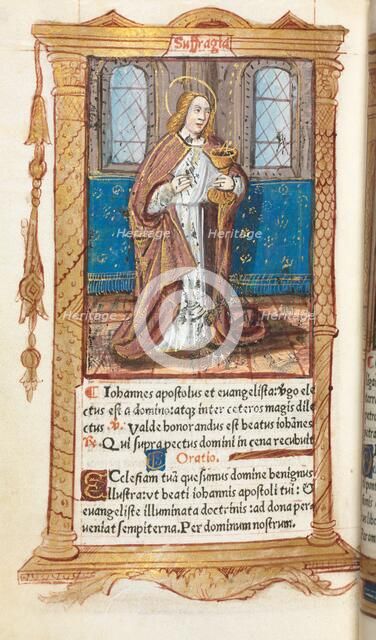 Suffragia
Heritage Heritage
Heritage Heritage
Heritage Heritage
¶ Iohannes apostolus et euangelista: v̾go ele
ctus est a domino: atq̃ inter ceteros magis dile
ctus ℣. Valde honorandus est beatus iohãnes
℟. Qui supra pectus domini in cena recubuit
Oratio.
Ecclesiam tuã quesumus domine benignus
illustra: vt beati iohannis apostoli tui: &
euangeliste illuminata doctrinis: ad dona per
ueniat sempiterna. Per dominum nostrum.